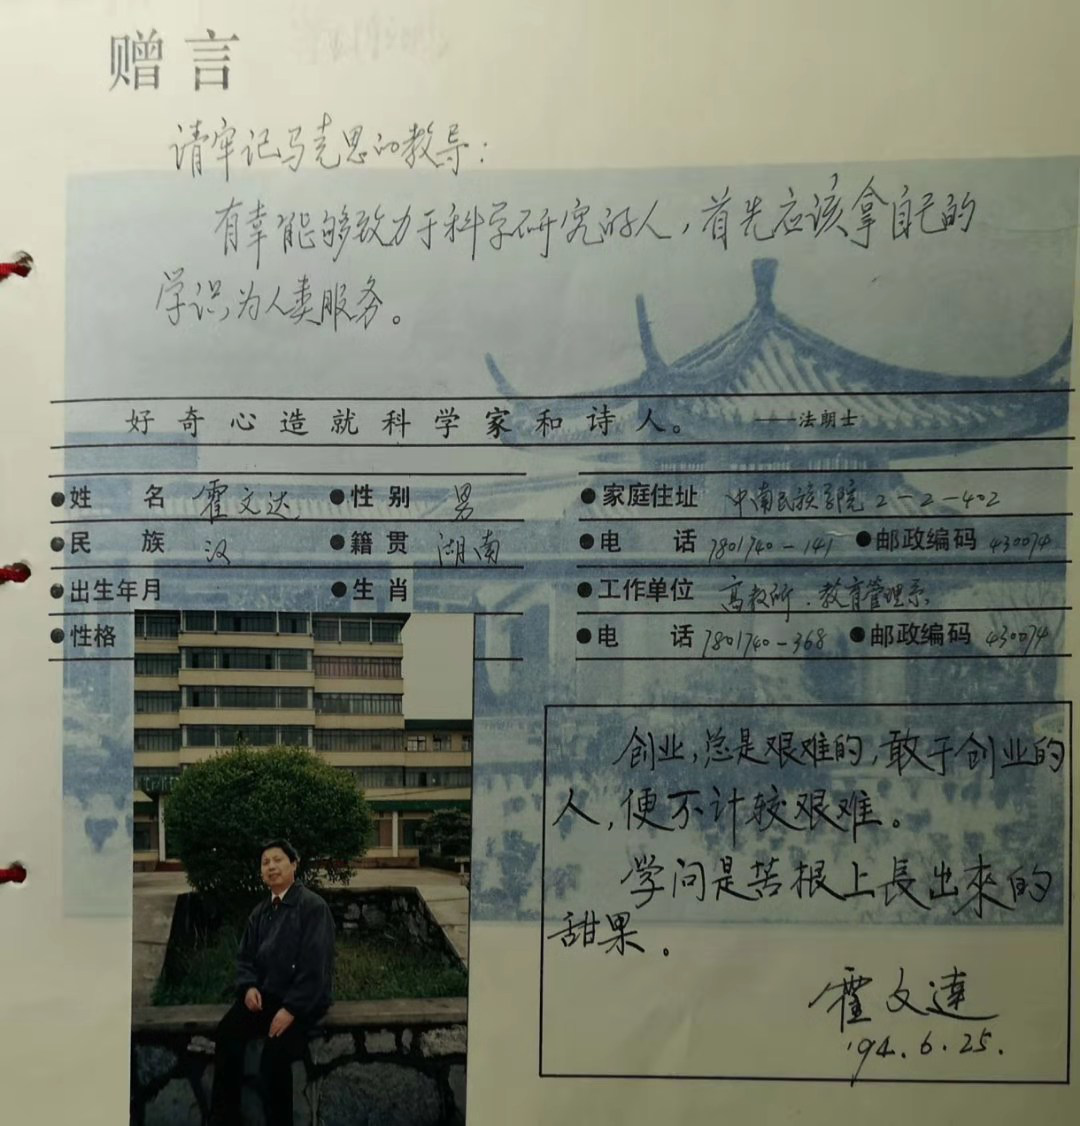 赠言
请牢记马克思的教导：
有幸能够致力于科学研究的人，首先应该拿自己的
学识，为人类服务。
好奇心造就科学家和诗人。——法朗士
姓 名 霍文达 性别 男
民 族 汉 籍贯 湖南
出生年月 生肖
性格
家庭住址 中南民族学院2-2-402
电 话 7801740-141 邮政编码 430074
工作单位 高教所.教育管理系
电 话 7801740-368 邮政编码 430074
创业，总是艰难的，敢于创业的
人，便不计较艰难。
学问是苦根上長出來的
甜果。
霍文達
'94.6.25.